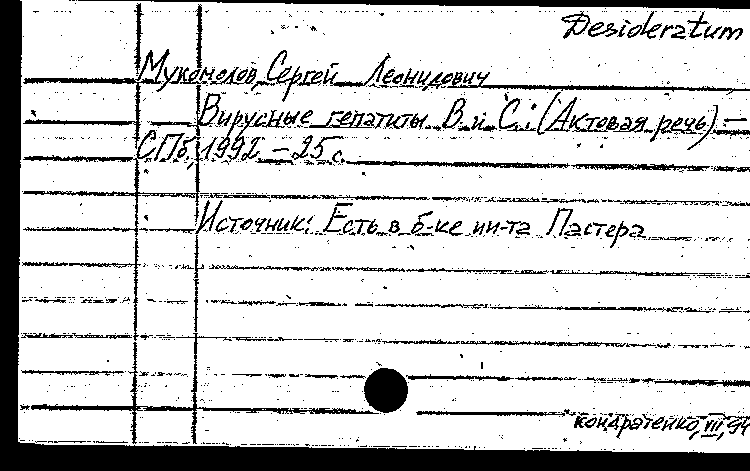 Desideratum
Мукомолов, Сергей Леонидович
Вирусные гепатиты В и С.: (Актовая речь) —
СПб, 1992. – 25 с.
Источник: Есть в б-ке ин-та Пастера
Кондратенко, VII, 94